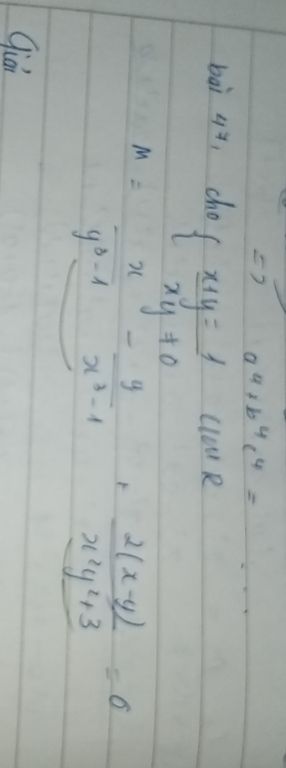 => a⁴+b⁴+c⁴ = ...
bài 47, cho { x+y = 1 CMR
xy ≠ 0
M = x/(y³-1) - y/(x³-1) + 2(x-y)/(x²y²+3) = 0
Giải